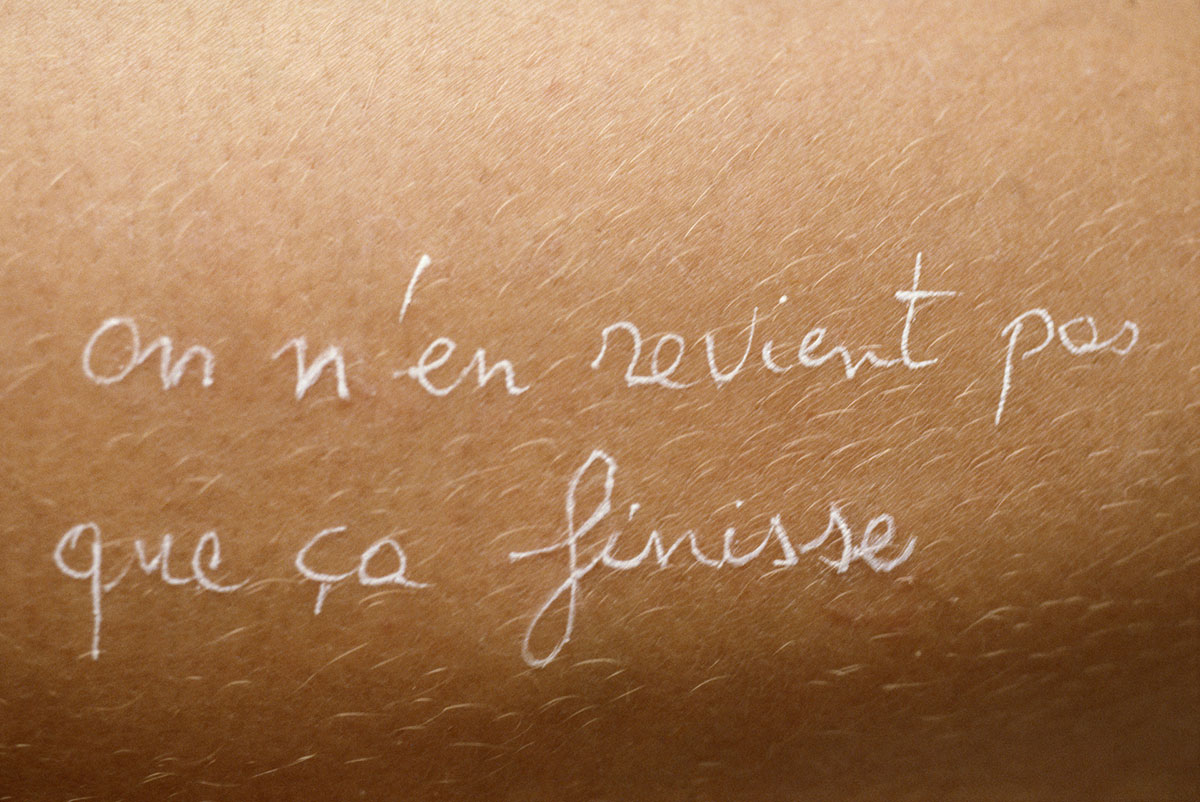 on n'en revient pas
que ça finisse